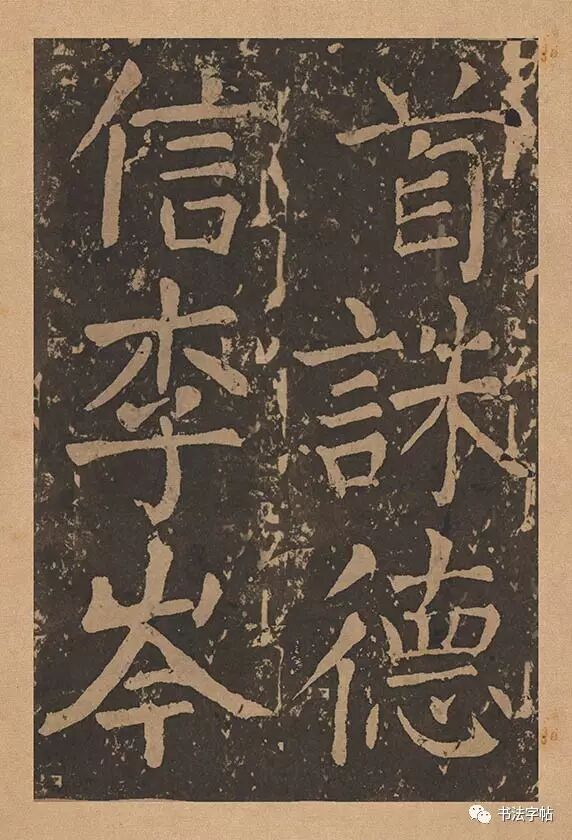 首誅德
信李岑
书法字帖